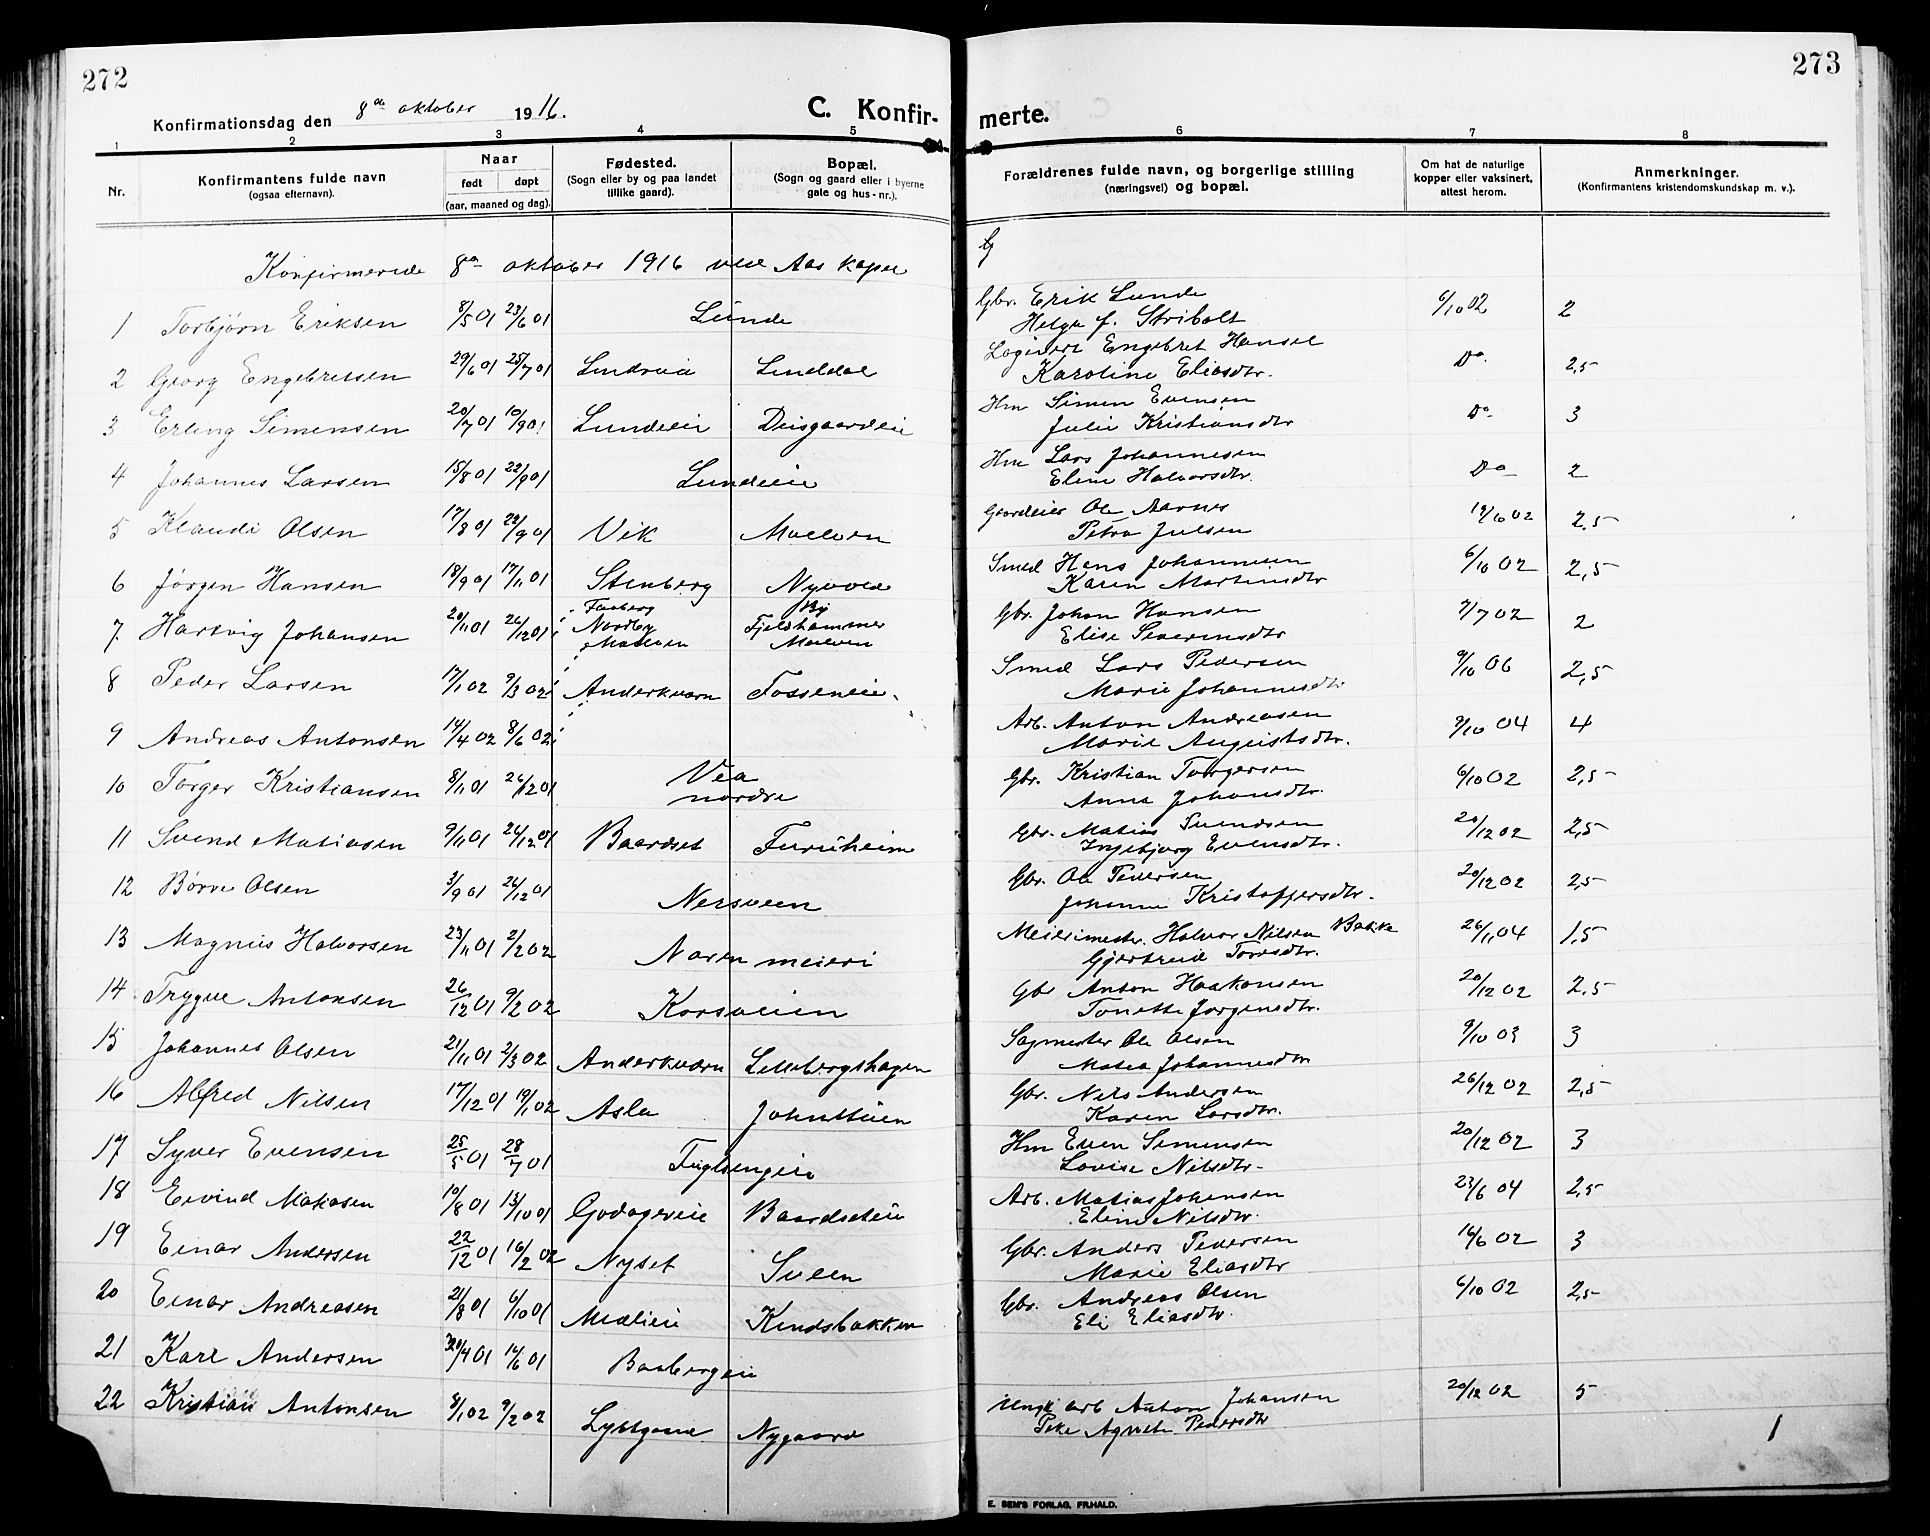 272
Konfirmationsdag den 8de oktober 1916.
C. Konfir-
1 2 3 4 5
Nr.
Konfirmantens fulde navn
(ogsaa efternavn).
Naar
født døpt
(aar, maaned og dag).
Fødested.
(Sogn eller by og paa landet
tillike gaard).
Bopæl.
(Sogn og gaard eller i byerne
gate og hus-nr.).
Konfirmerede 8de oktober 1916 ved Aas kapel
1 Torbjørn Eriksen 8/5 01 23/6 01 Lunde
2 Georg Engebretsen 29/6 01 25/7 01 Lundeie Lunddal
3 Erling Simensen 20/7 01 10/9 01 Lundeie Diisgaardeie
4 Johannes Larsen 15/8 01 22/9 01 Lundeie
5 Klaudi Olsen 17/8 01 22/9 01 Vik Moelven
6 Jørgen Hansen 18/9 01 17/11 01 Stenberg Nyvold
7 Hartvig Johansen 20/11 01 26/12 01 Faaberg Nordby Moelven Fjeldhammer Moelven
8 Peder Larsen 17/1 02 9/3 02 Anderkværn Fosseneie
9 Andreas Antonsen 14/4 02 8/6 02
10 Torger Kristiansen 8/11 01 26/12 01 Vea nordre
11 Svend Matiasen 9/11 01 26/12 01 Baardset Furuheim
12 Børre Olsen 3/9 01 26/12 01 Nersveen
13 Magnus Halvorsen 23/11 01 2/2 02 Noren meieri
14 Trygve Antonsen 26/12 01 9/2 02 Korsveien
15 Johannes Olsen 21/11 01 2/3 02 Anderkværn Lillebergshagen
16 Alfred Nilsen 17/12 01 19/1 02 Asla Johnstuen
17 Syver Evensen 25/5 01 28/7 01 Fuglsengeie
18 Eivind Matiasen 10/8 01 13/10 01 Godagereie Baardseteie
19 Einar Andersen 22/12 01 16/2 02 Nyset Sveen
20 Einar Andreasen 21/8 01 6/10 01 Mælieie Kindsbakken
21 Karl Andersen 30/4 01 16/6 01 Baabergeie
22 Kristian Antonsen 8/1 02 9/2 02 Lystgaard Nygaard
273
merte.
6 7 8
Forældrenes fulde navn, og borgerlige stilling
(næringsvei) og bopæl.
Om hat de naturlige
kopper eller vaksinert,
attest herom.
Anmerkninger.
(Konfirmantens kristendomskundskap m. v.).
Gbr. Erik Lunde 6/10 02 2
Helga f. Stribolt
Engebret Hansen Do 2,5
Karoline Eliasdtr.
Hm Simen Evensen Do 3
Julie Kristiansdtr
Hm Lars Johannesen Do 2
Eline Halvorsdtr.
Gaardeier Ole Aarnes 19/6 02 2,5
Petra Julsen
Smed Hans Johannesen 6/10 02 2,5
Karen Martinsdtr
Gbr. Johan Hansen 7/7 02 2
Elise Severinsdtr
Smed Lars Pedersen 9/10 06 2,5
Marie Johannesdtr
Arb. Anton Andreasen 9/10 04 4
Marie Augustsdtr.
Gbr. Kristian Torgersen 6/10 02 2,5
Anna Johansdtr.
Gbr. Matias Svendsen 20/12 02 2,5
Ingebjørg Evensdtr.
Gbr. Ole Pedersen 20/12 02 2,5
Johanne Kristoffersdtr.
Meierimester. Halvor Nilsen Bakke 26/11 04 1,5
Gjertrud Toresdtr.
Gbr Anton Haakonsen 20/12 02 2,5
Tonette Jørgensdtr.
Sagmester Ole Olsen 9/10 03 3
Matea Johannesdtr
Gbr. Nils Andersen 26/12 02 2,5
Karen Larsdtr.
Hm Even Simensen 20/12 02 3
Lovise Nilsdtr
Arb. Matias Johansen 23/6 04 2,5
Eline Nilsdtr.
Gbr. Anders Pedersen 16/6 02 3
Marie Eliasdtr
Gbr. Andreas Olsen 6/10 02 2,5
Eli Eliasdtr.
Ungk arb Anton Johansen 20/12 02 5
Pike Agnete Pedersdtr
1
E. SEM'S FORLAG, FR.HALD.